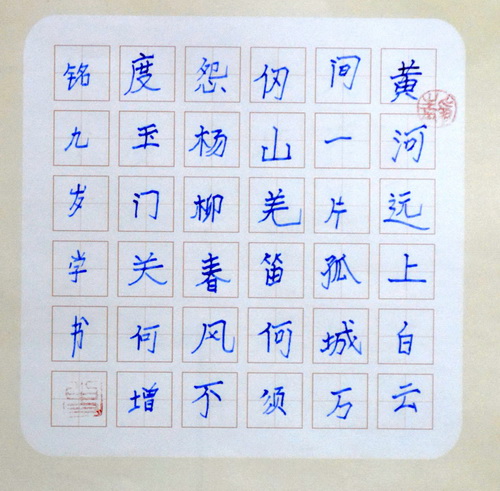 黄河远上白云
间一片孤城万
仞山羌笛何须
怨杨柳春风不
度玉门关何增
铭九岁学书